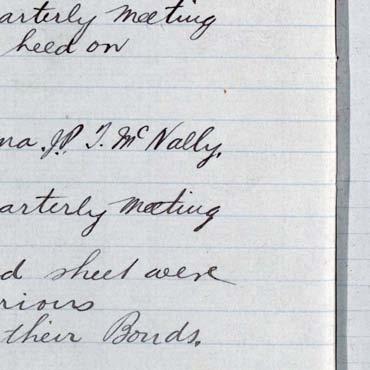 arterly meeting
heed on
ma. J.P. T. McNally.
arterly meeting
d sheet were
rious
their Bonds.